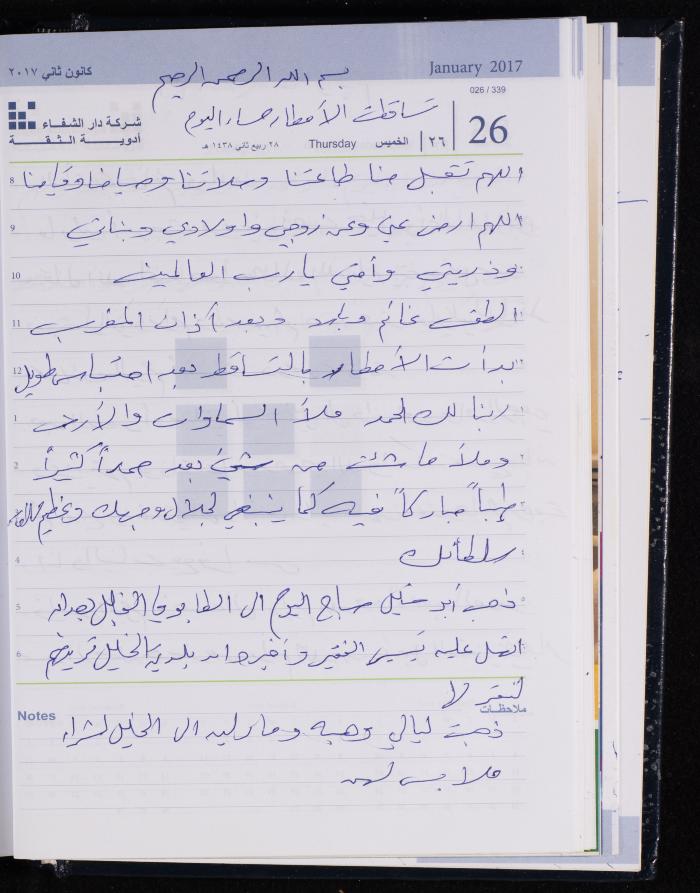 كانون ثاني ٢٠١٧
January 2017
بسم الله الرحمن الرحيم
026 / 339
شركة دار الشفاء
أدوية الثقة
تساقطت الأمطار مساء اليوم
26
٢٦
الخميس
Thursday
٢٨ ربيع ثاني ١٤٣٨ هـ
8 اللهم تقبل منا طاعتنا وصلاتنا وصيامنا وقيامنا
9 اللهم ارض عني وعن زوجي واولادي وبناتي
10 وذريتي وأمتي يا رب العالمين
11 الطقس غائم وبارد وبعد أذان المغرب
12 بدأت الأمطار بالتساقط بعد احتباس طويل
1 ربنا لك الحمد ملأ السماوات والأرض
2 وملأ ما شئت من شيء بعد حمداً كثيراً
طيباً مباركاً فيه كما ينبغي لجلال وجهك وعظيم
4 سلطانك
5 ذهب أبو خليل صباح اليوم الى الخليل بعد ان
6 اتصل عليه تيسير الفقير وأخبره ان بلدية الخليل تريده
Notes
ملاحظات
ذهبت ليالي وهبه الى الخليل لشراء
ملابس لهن